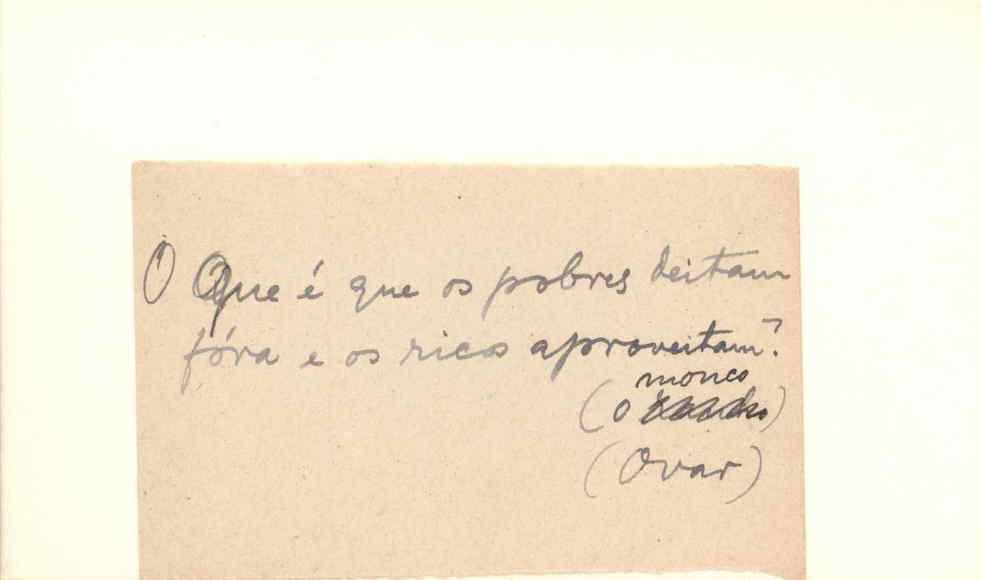 O Que é que os pobres deitam
fóra e os ricos aproveitam?
monco
(O)
(Ovar)